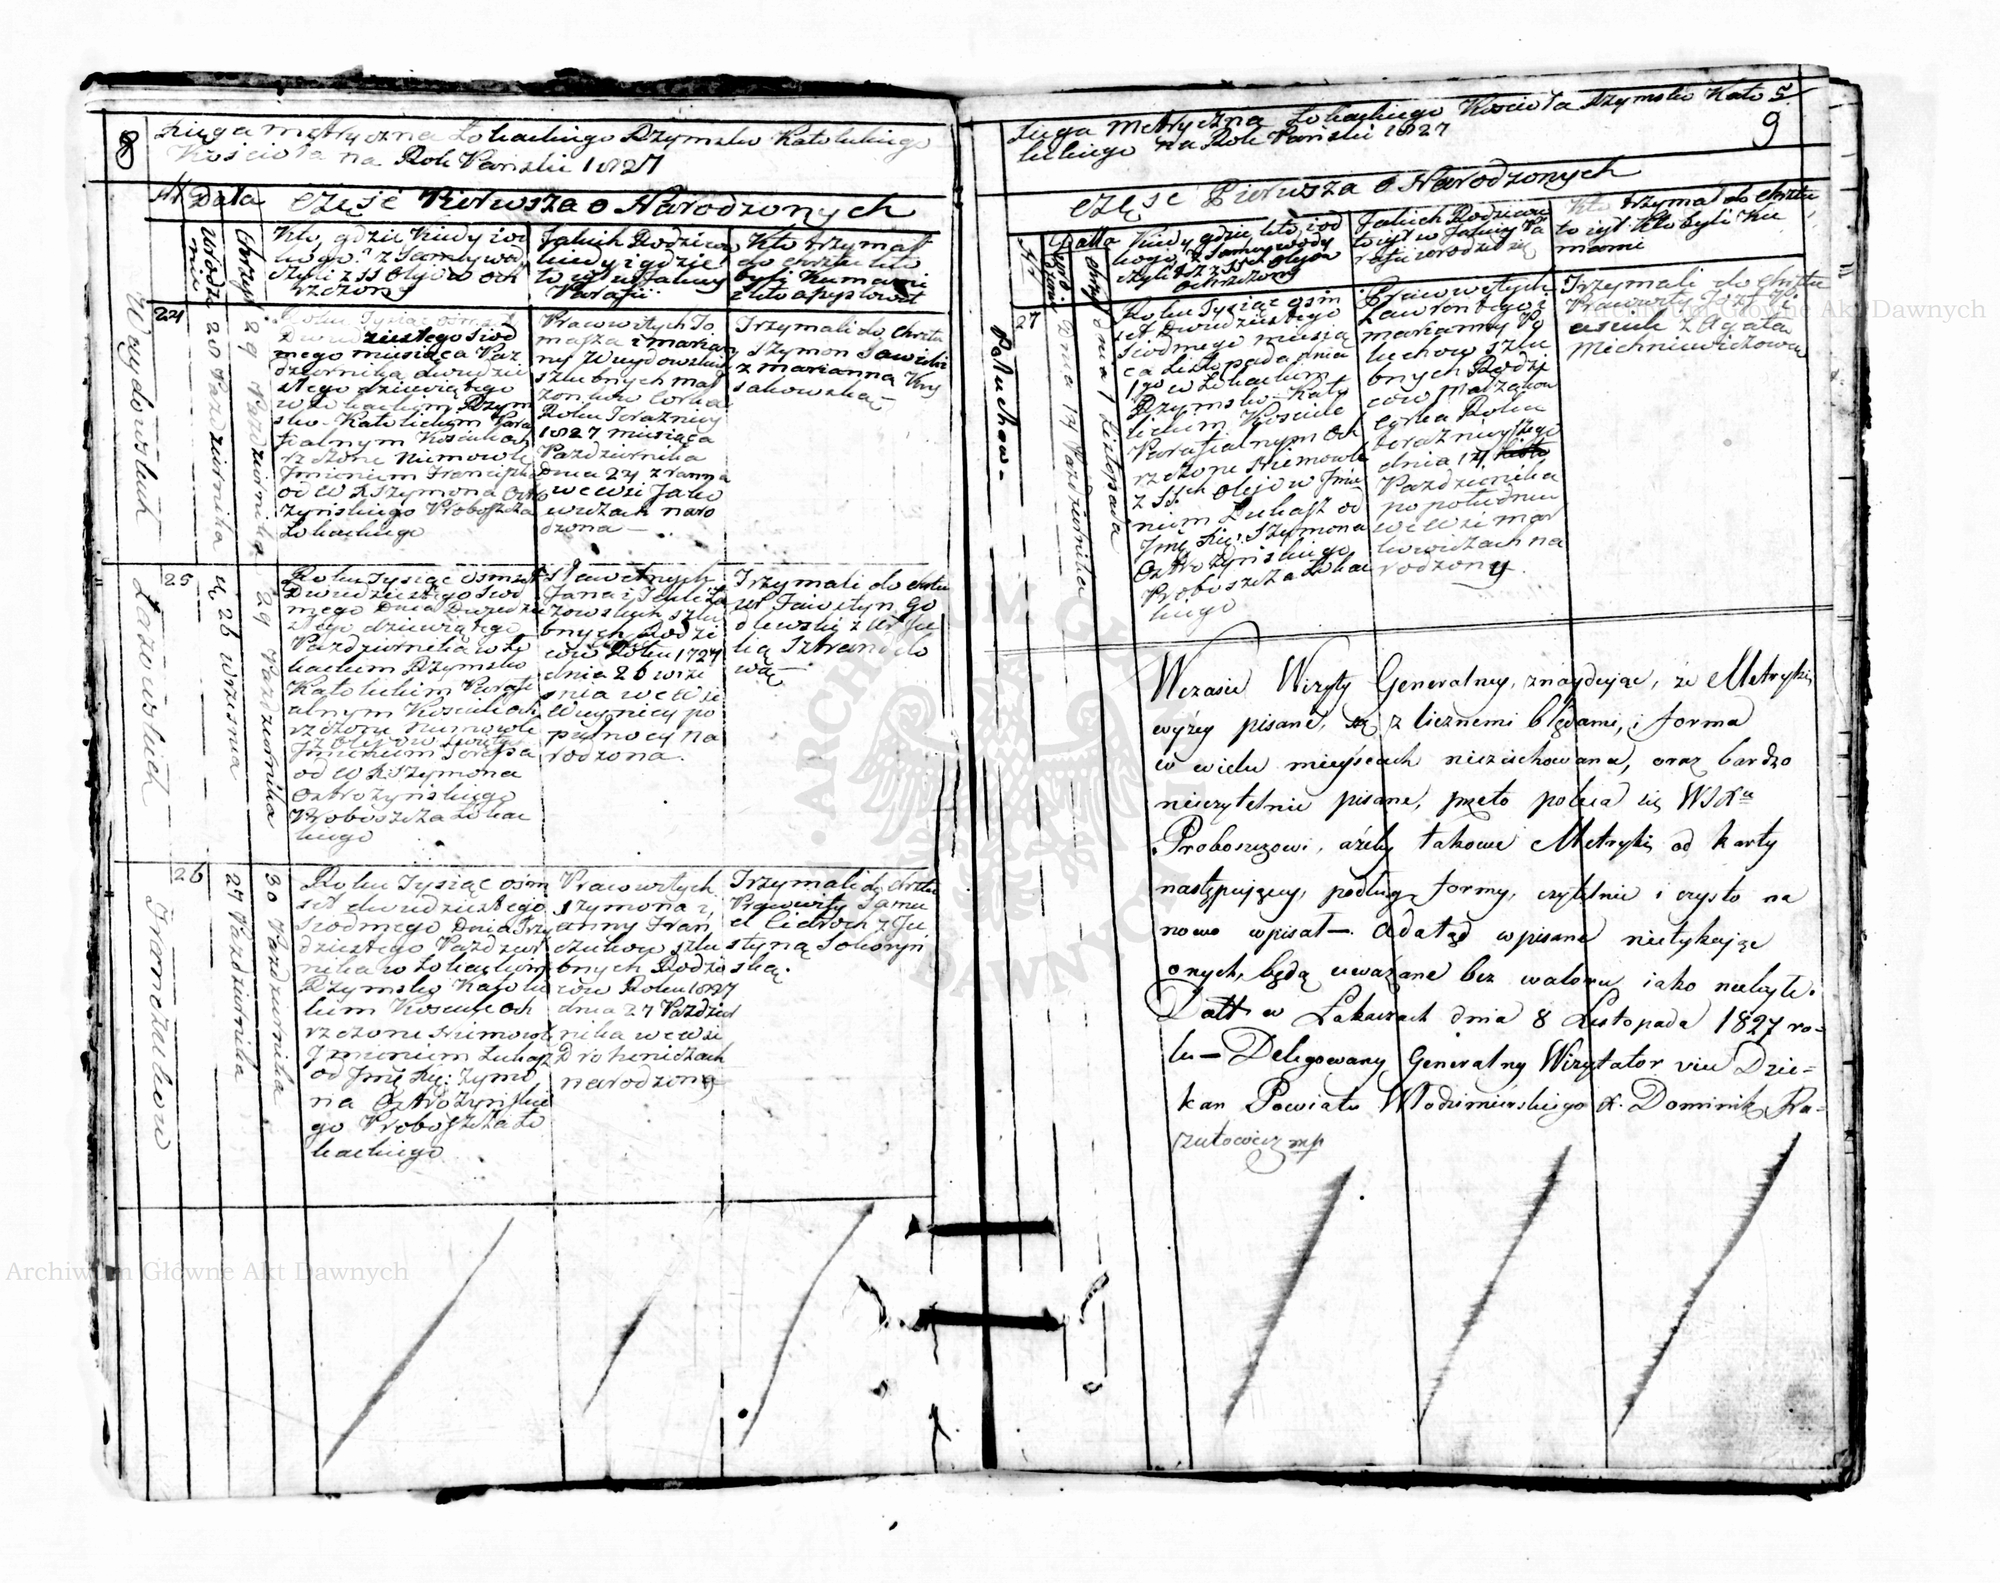 8
Xięga metryczna Łokackiego Rzymsko Katolickiego
Kościoła na Rok Pański 1827
N Data Część Pierwsza o Narodzonych
Urodze
nia
Chrztu
Kto, gdzie Kiedy i od
kogo? z Samey wo
dy czyli z SS Olejów och
rzczony
Jakich Rodziców
kiedy i gdzie
to jest w Jakiey
Parafii
Kto trzymał
do chrztu kto
byli Kumami
24
Woydowskich
20 Października
29 Października
Roku Tysiąc ośmset
Dwudziestego siod
mego miesiąca Paz
dziernika dwudzie
stego dziewiątego
w Łokackim Rzym
sko Katolickim Para
fialnym Kosciele och
rzczone Niemowle
Imieniem Franciszka
od W X Szymona Ostro
żyńskiego Proboszcza
Łokackiego
Pracowitych To
masza i Marian
ny Woydowskich
szlubnych mał
żonków Corka
Roku Teraźniey
1827 miesiąca
Pazdziernika
Dnia 24 z ranna
we wsi Jako
wiczach naro
dzona
Trzymali do chrztu
Szymon Sawicki
z Marianną Krys
sakowską
25
Łazowskich
26 Wrzesnia
29 Pazdziernika
Roku Tysiąc osmset
Dwudziestego siod
mego Dnia Dwudzie
stego dziewiątego
Pazdziernika w Ło
kackim Rzymsko
Katolickim Parafi
alnym Kosciele och
rzczone Niemowle
z Olejow Swięt
Imieniem Jozefa
od W X Szymona
Ostrożyńskiego
Proboszcza Łokac
kiego
Sławetnych
Jana i Tekli Ła
zowskich szlu
bnych Rodzi
cow Roku 1727
dnia 26 wrze
snia we wsi
Woynicy po
pułnocy na
rodzona.
Trzymali do chrztu
Ur Fawstyn Go
dlewski z Ur Ju
lią
26
Franczukow
27 Pazdziernika
30 Pazdziernika
Roku Tysiąc ośm
set dwudziestego
siodmego Dnia Trzy
dziestego Pazdzier
nika w Łokackim
Rzymsko Katolic
kim Kosciele Och
rzczone Niemowle
Imieniem Łukasz
od Jmę Xię: Szymo
na Ostrożyńskie
go Proboszcza Ło
kackiego
Pracowitych
Szymona i
Anny Fran
czukow szlu
bnych Rodzi
cow Roku 1827
dnia 27 Pazdzier
nika we wsi
Drokeniczach
narodzony
Trzymali do chrztu
Pracowity Samu
el Cidroch z Ju
styną Sokoryn
ską.
5
9
Xięga Metryczna Łokackiego Kościoła Rzymsko Kato
lickiego na Rok Pański 1827
Część Pierwsza o Narodzonych
N
Datta
Chrztu
Kiedy gdzie, kto, i od
kogo, z Samey wody
czyli też z SS Olejow
Ochrzczony
Jakich Rodziców
to jest w Jakiey Pa
rafii urodził się
Kto trzymał do chrztu
to jest kto byli Ku
mami
27
Pastuchow
Dnia 17 Pazdziernika
Dnia 1 Listopada
Roku Tysiąc ośm
set Dwudziestego
Siodmego miesią
ca Listopada dnia
1go w Łokackim
Rzymsko-Kato
lickim Kosciele
Parafialnym Och
rzczone Niemowle
z SSch Olejow Jmie
niem Łukasz od
Jmę Xię: Szymona
Ostrożyńskiego
Proboszcza Łokac
kiego
Pracowitych
Ławrontego i
Marianny Pa
luchow szlu
bnych Rodzi
cow małżąkow
corka Roku
teraznieyszego
dnia 17
Pazdziernika
po południu
we wsi Mar
kowiczach na
rodzony
Trzymali do chrztu
Pracowity Jozef Wi
z Agatą
Michniewiczową
Wczasie Wizyty Generalney, znaydując, że Metryki,
wyżey pisane, są z licznemi błędami, i forma
w wielu mieyscach niezachowana, oraz bardzo
nieczytelnie pisane, przeto poleca się WJXu
Proboszczowi, ażeby takowe Metryki od karty
następującey, podług formy, czytelnie i czysto na
nowo wpisał—. A dotąd wpisane nietykając
onych, będą uważane bez waloru iako niebyłe.
Datt w Łokaczach dnia 8 Listopada 1827 ro-
ku— Delegowany Generalny Wizytator vice Dzie-
kan Powiatu Włodzimirskiego X. Dominik Ra-
czutowicz mp
Archiwum Główne Akt Dawnych
Archiwum Główne Akt Dawnych
ARCHIWUM GŁÓWNE AKT DAWNYCH